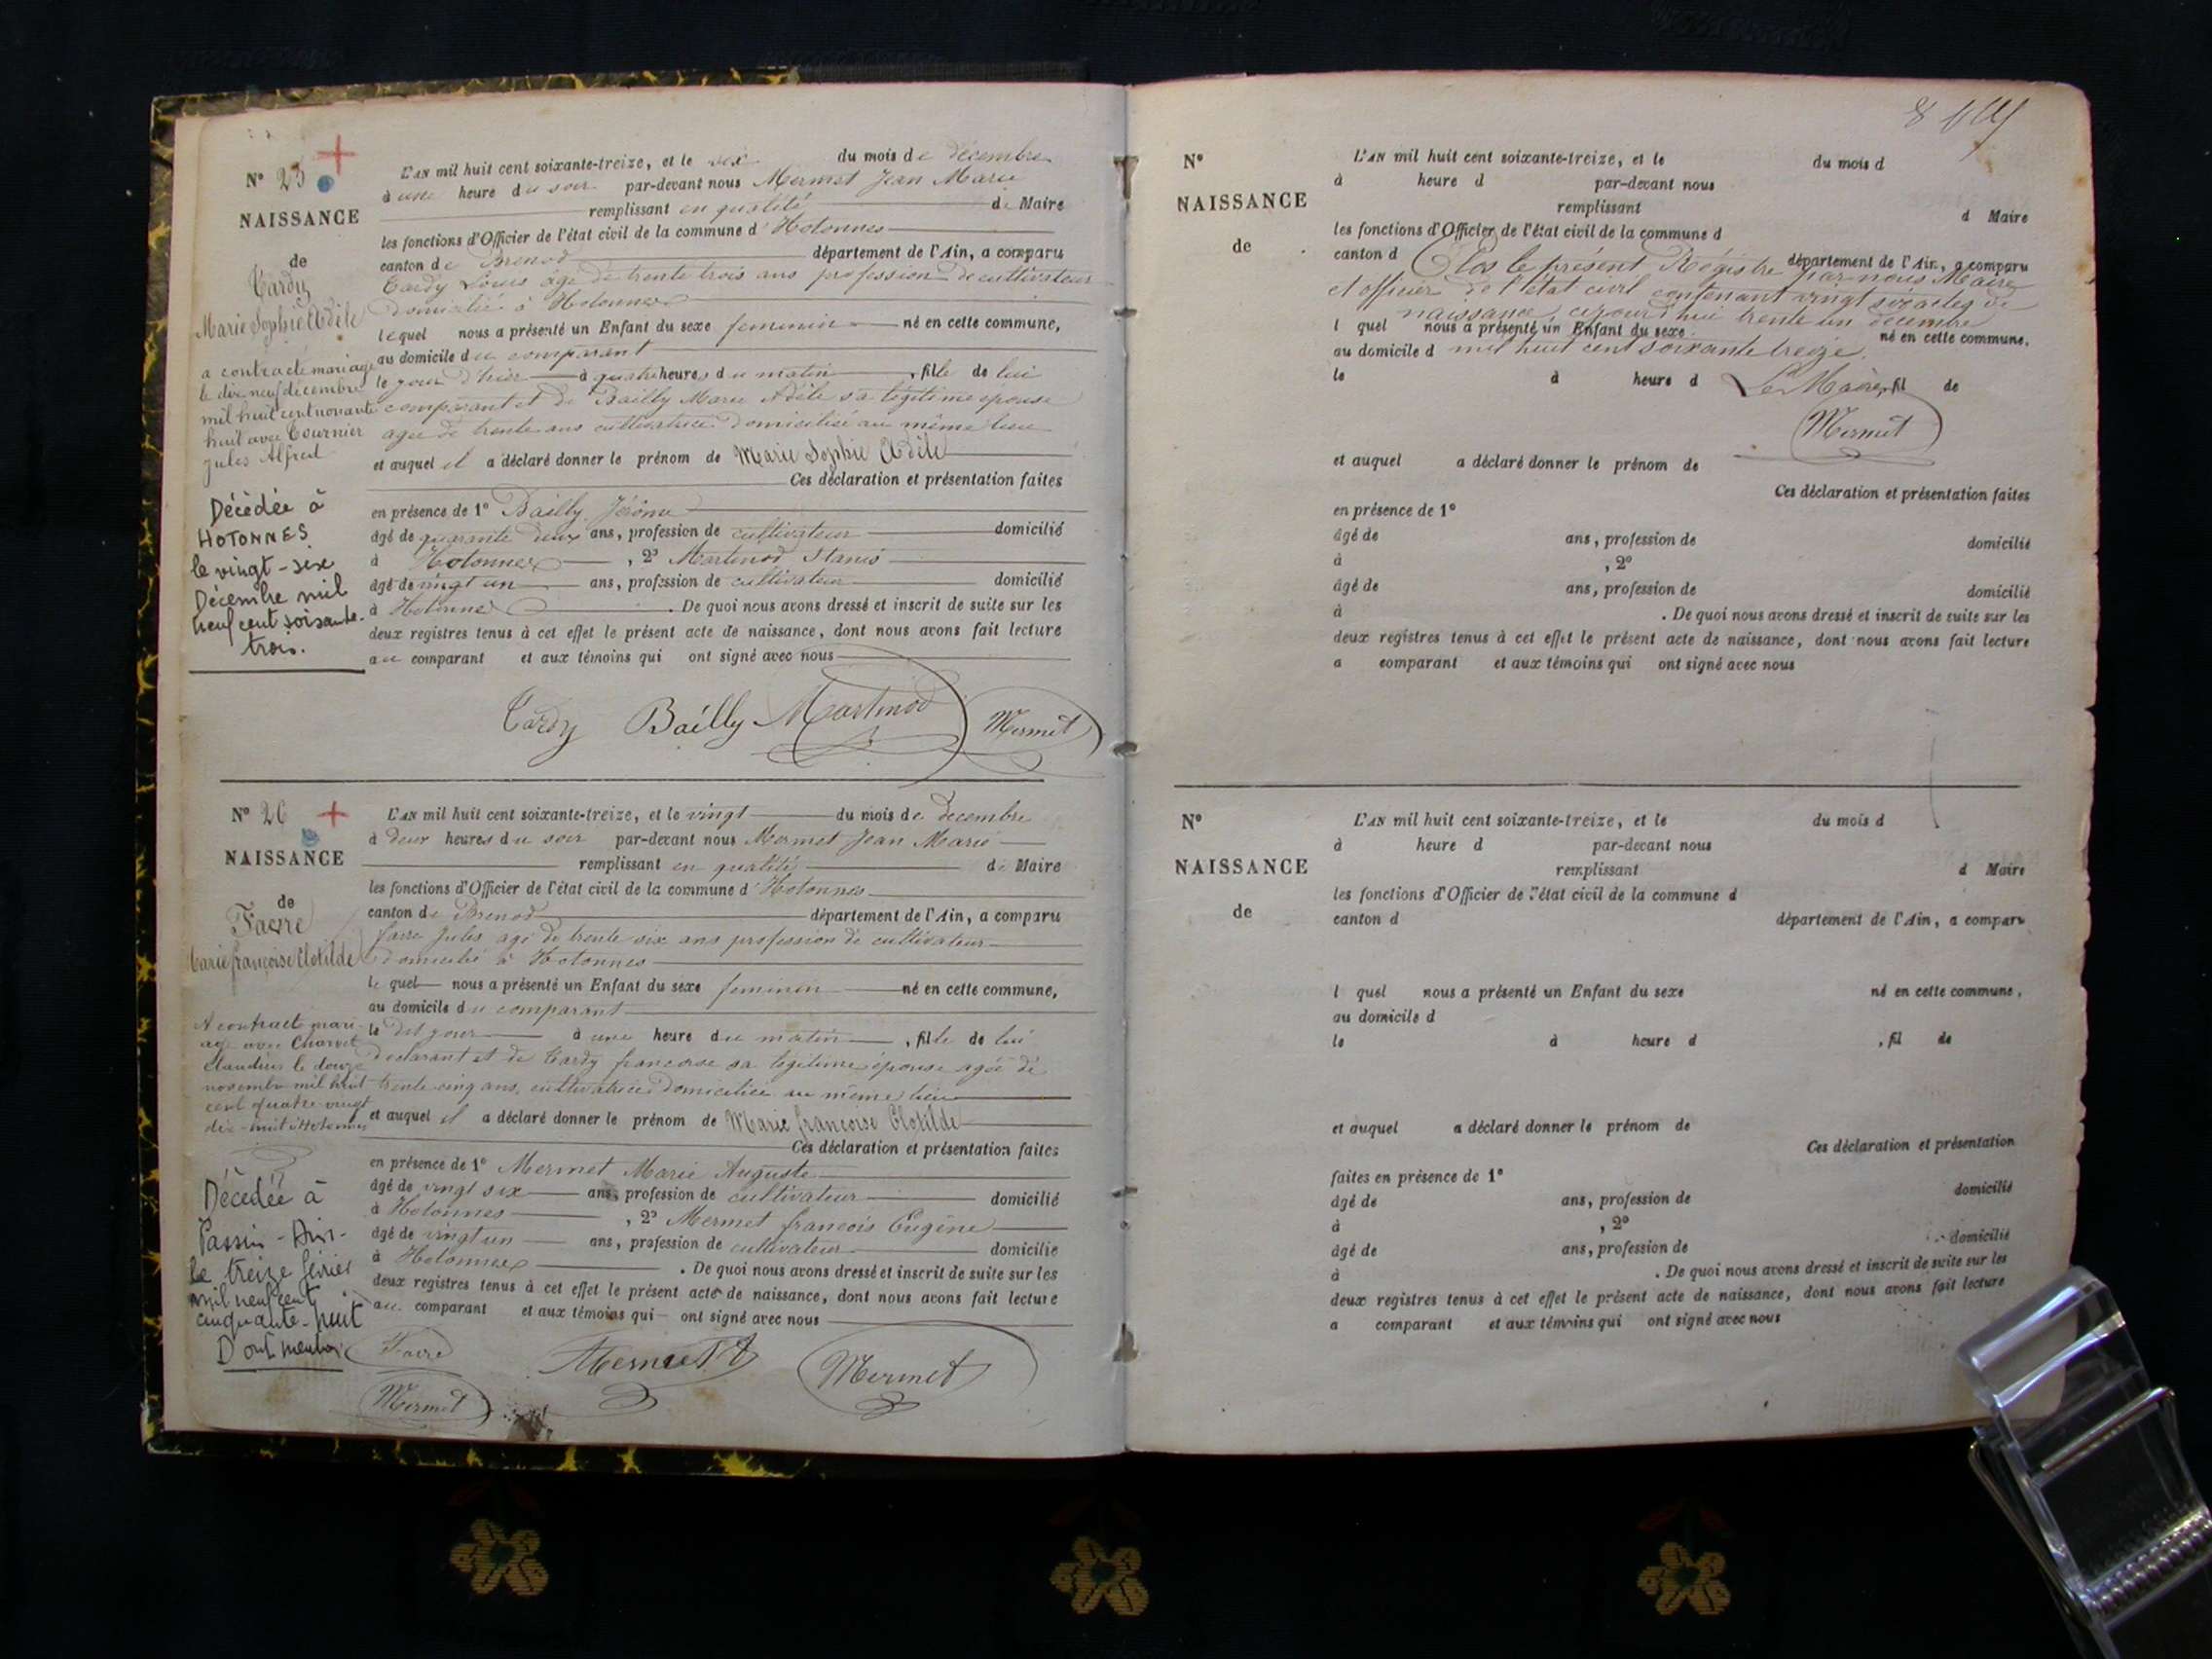 N° 25
NAISSANCE
de
Tardy
Marie Sophie Adèle
a contracté mariage
le dix neuf décembre
mil huit cent novante
huit avec Tournier
Jules Alfred
Décédée à
HOTONNES
le vingt-six
Décembre mil
neuf cent soixante-
trois.
L'AN mil huit cent soixante-treize, et le six du mois de décembre
à une heure du soir par-devant nous Mermet Jean Marie
remplissant en qualité de Maire
les fonctions d'Officier de l'état civil de la commune d'Hotonnes
canton de Brenod département de l'Ain, a comparu
Tardy Louis âgé de trente trois ans profession de cultivateur
domicilié à Hotonnes
lequel nous a présenté un Enfant du sexe feminin né en cette commune,
au domicile du comparant
le jour d'hier à quatre heures du matin, fille de lui
comparant et de Bailly Marie Adèle sa légitime épouse
agée de trente ans cultivatrice domiciliée au même lieu
et auquel il a déclaré donner le prénom de Marie Sophie Adèle
Ces déclaration et présentation faites
en présence de 1° Bailly Jérôme
âgé de quarante deux ans, profession de cultivateur domicilié
à Hotonnes, 2° Martinod Stanis
âgé de vingt un ans, profession de cultivateur domicilié
à Hotonnes. De quoi nous avons dressé et inscrit de suite sur les
deux registres tenus à cet effet le présent acte de naissance, dont nous avons fait lecture
au comparant et aux témoins qui ont signé avec nous
Tardy Bailly Martinod Mermet
N° 26
NAISSANCE
de
Favre
Marie françoise Clotilde
A contracté mari-
age avec Charvet
Claudius le douze
novembre mil huit
cent quatre-vingt
dix-huit à Hotonnes
Décédée à
Passin - Ain -
le treize février
mil neuf cent
cinquante-huit
Dont mention
L'AN mil huit cent soixante-treize, et le vingt du mois de decembre
à deux heures du soir par-devant nous Mermet Jean Marie
remplissant en qualité de Maire
les fonctions d'Officier de l'état civil de la commune d'Hotonnes
canton de Brenod département de l'Ain, a comparu
favre Jules agé de trente six ans profession de cultivateur
domicilié à Hotonnes
lequel nous a présenté un Enfant du sexe feminin né en cette commune,
au domicile du comparant
le dit jour à une heure du matin, fille de lui
declarant et de Tardy francoise sa légitime épouse agée de
trente cinq ans, cultivatrice domiciliée au même lieu
et auquel il a déclaré donner le prénom de Marie françoise Clotilde
Ces déclaration et présentation faites
en présence de 1° Mermet Marie Auguste
âgé de vingt six ans, profession de cultivateur domicilié
à Hotonnes, 2° Mermet francois Eugène
âgé de vingt un ans, profession de cultivateur domicilié
à Hotonnes. De quoi nous avons dressé et inscrit de suite sur les
deux registres tenus à cet effet le présent acte de naissance, dont nous avons fait lecture
au comparant et aux témoins qui ont signé avec nous
Favre Mermet Mermet
Mermet
N°
NAISSANCE
de
L'AN mil huit cent soixante-treize, et le du mois d
à heure d par-devant nous
remplissant d Maire
les fonctions d'Officier de l'état civil de la commune d
canton d département de l'Ain, a comparu
Clos le présent Régistre par nous Maire
et officier de l'état civil contenant vingt six actes de
naissance, cejourd'hui trente un décembre
l quel nous a présenté un Enfant du sexe né en cette commune,
au domicile d mil huit cent soixante treize.
le à heure d , fil de
Le Maire,
Mermet
et auquel a déclaré donner le prénom de
Ces déclaration et présentation faites
en présence de 1°
âgé de ans, profession de domicilié
à , 2°
âgé de ans, profession de domicilié
à . De quoi nous avons dressé et inscrit de suite sur les
deux registres tenus à cet effet le présent acte de naissance, dont nous avons fait lecture
a comparant et aux témoins qui ont signé avec nous
N°
NAISSANCE
de
L'AN mil huit cent soixante-treize, et le du mois d
à heure d par-devant nous
remplissant d Maire
les fonctions d'Officier de l'état civil de la commune d
canton d département de l'Ain, a comparu
l quel nous a présenté un Enfant du sexe né en cette commune,
au domicile d
le à heure d , fil de
et auquel a déclaré donner le prénom de
Ces déclaration et présentation
faites en présence de 1°
âgé de ans, profession de domicilié
à , 2°
âgé de ans, profession de domicilié
à . De quoi nous avons dressé et inscrit de suite sur les
deux registres tenus à cet effet le présent acte de naissance, dont nous avons fait lecture
a comparant et aux témoins qui ont signé avec nous